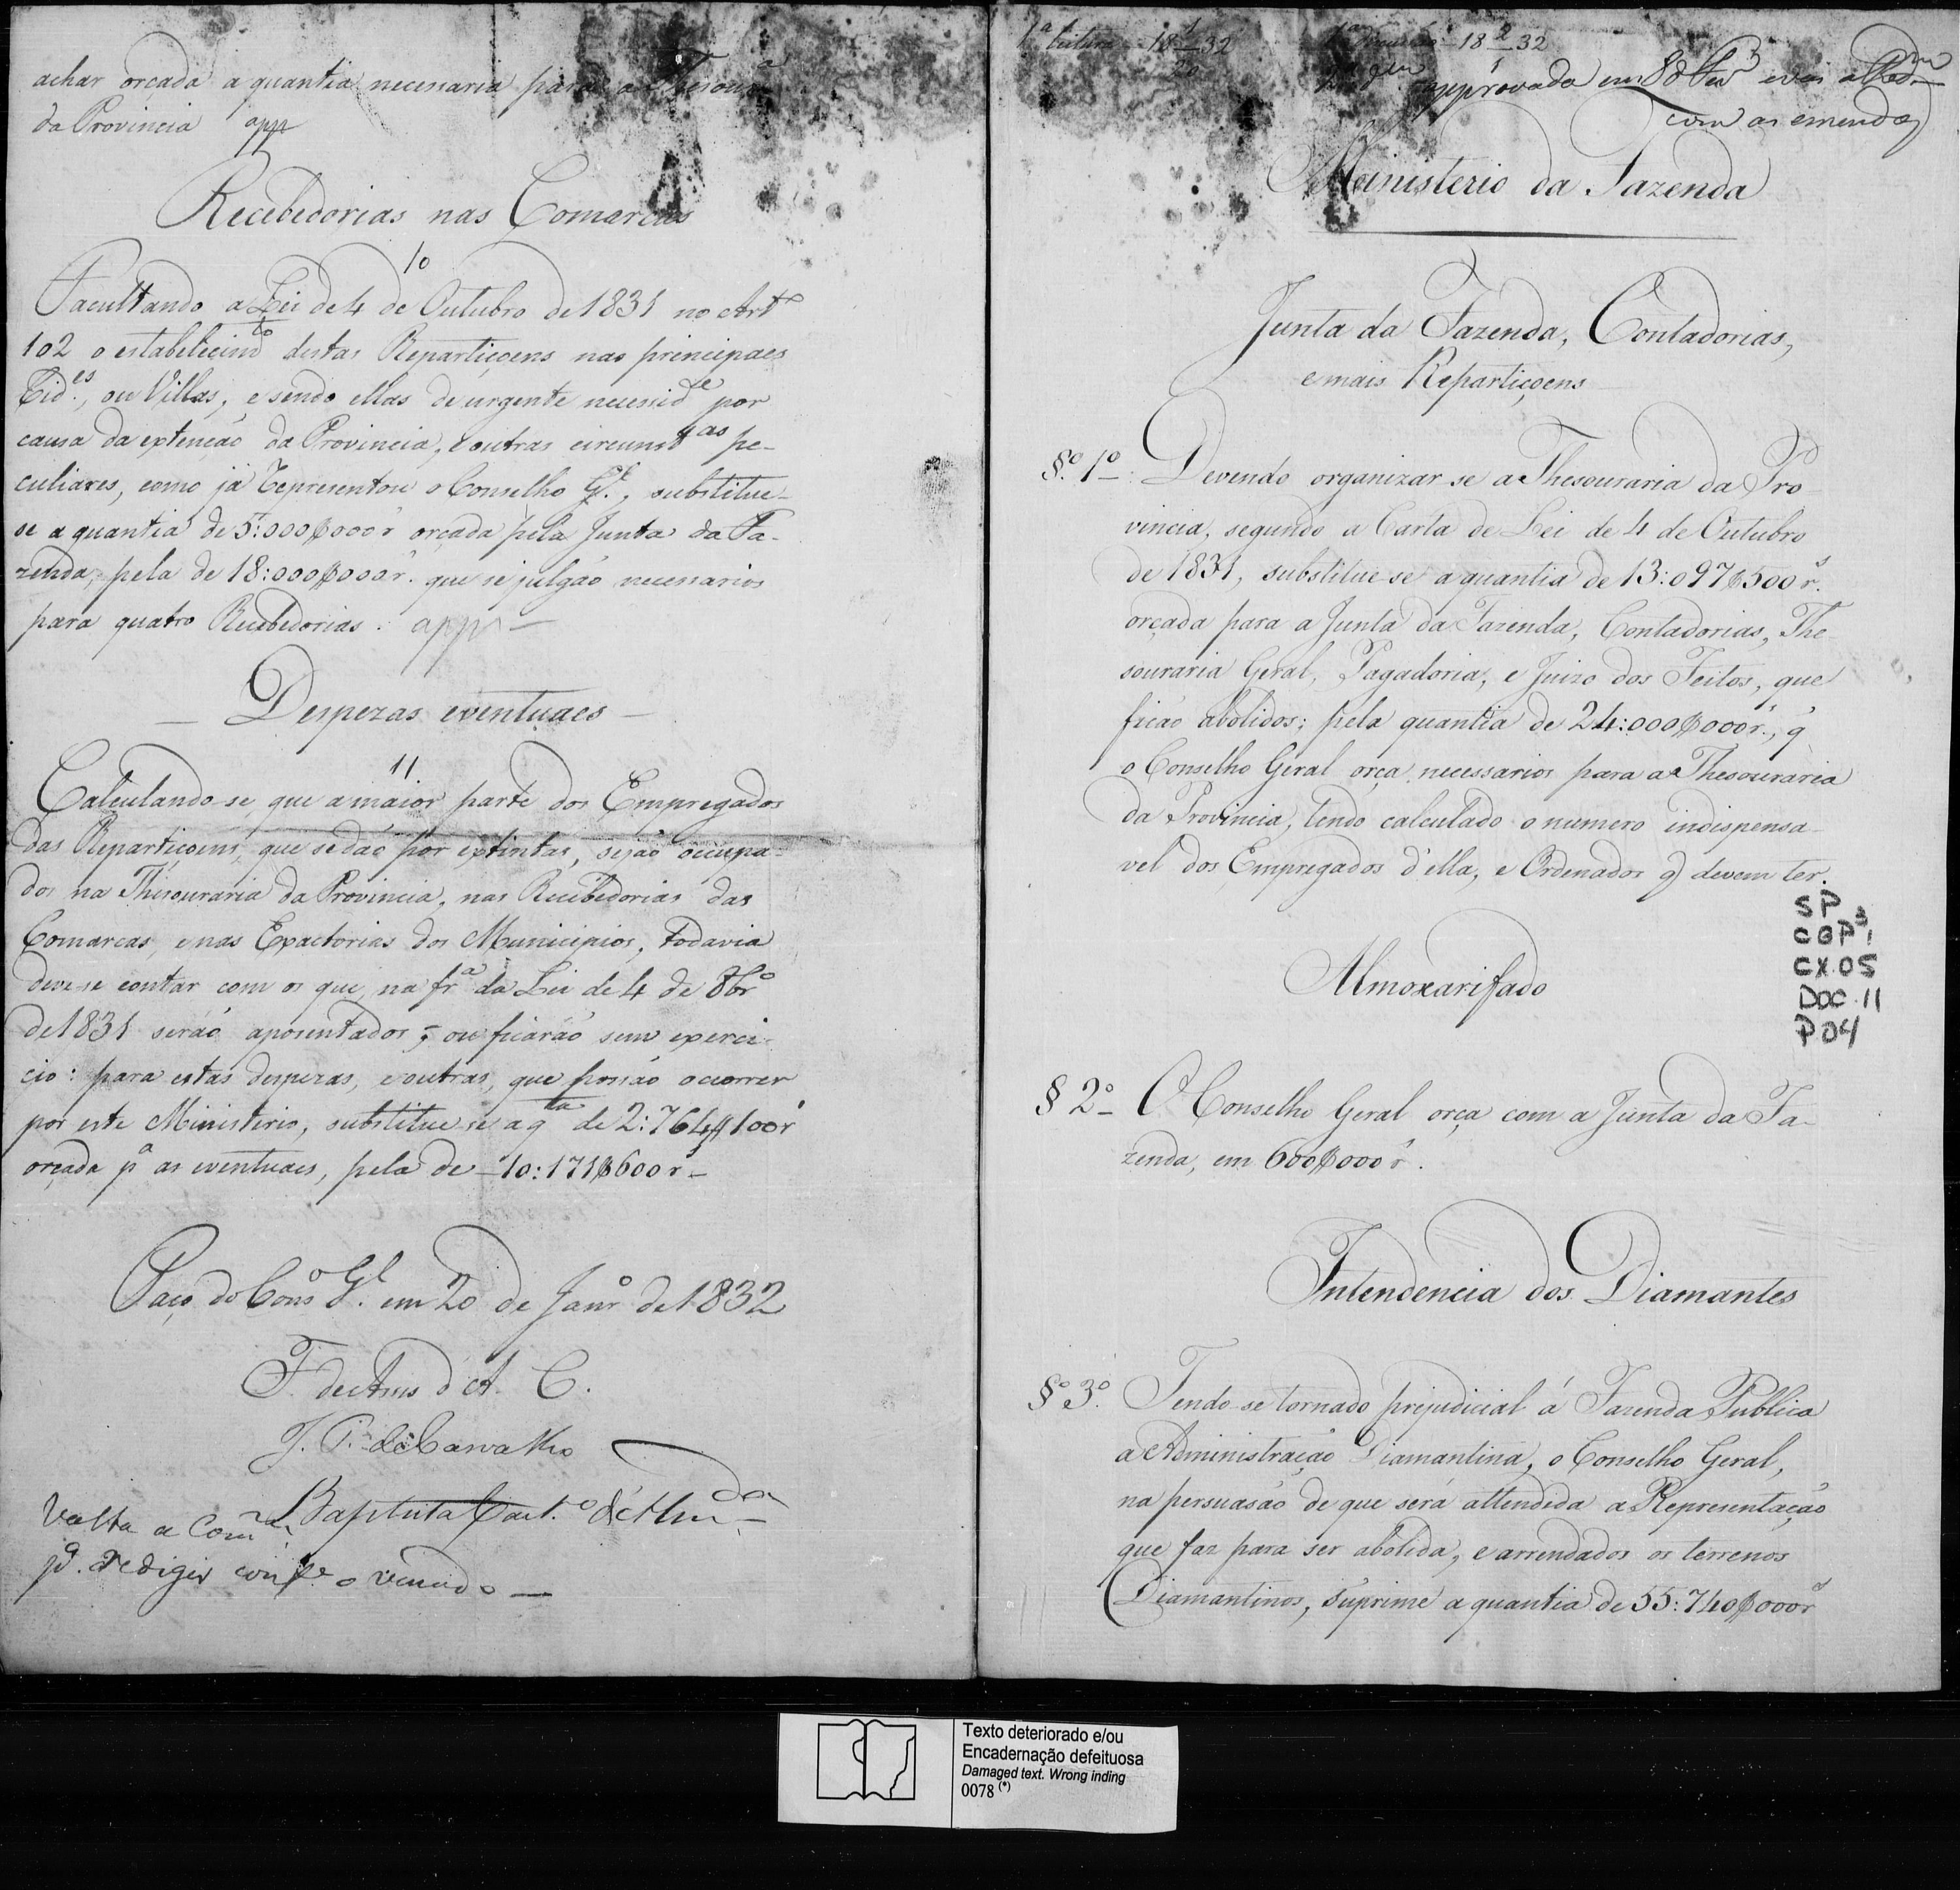 achar orcada a quantia necessaria para a Thesourª
da Provincia app
Recebedorias nas Comarcas
10
Facultando a Lei de 4 de Outubro de 1831 no Artº
102 o estabelecimto destas Repartiçoens nas principaes
Cid.es, ou Villas, e sendo ellas de urgente necesside por
causa da extenção da Provincia, e outras circunstas pe-
culiares, como já representou o Conselho Gl., substitue-
se a quantia de 5:000$000 r orçada pela Junta da Fa-
zenda, pela de 18:000$000 r. que se julgão necessarios
para quatro Recebedorias. app -
- Despezas eventuaes -
11.
Calculando-se, que a maior parte dos Empregados
das Repartiçoens, que se dão por extintas, sejão occupa-
dos na Thesouraria da Provincia, nas Recebedorias das
Comarcas, e nas Exactorias dos Municipios, todavia
deve-se contar com os que, na frª da Lei de 4 de 8brº
de 1831 serão aposentados, ou ficarão sem exerci-
cio: para estas despezas, e outras, que possão occorrer
por este Ministerio, substitue se a qta de 2:764$100 r
orçada pª as eventuaes, pela de - 10:171$600 r -
Paço do Consº Gl. em 20 de Janrº de 1832
F. de Assis d'A. C.
J. P. de Carvalho
Baptista Caet.º d'Almda
Volta a Com.
pª redigir conf.e o vencido -
1ª leitura 18 1/20 32
18 2/1 32
approvada em 8 de Fevº
com as emendas
Ministerio da Fazenda
Junta da Fazenda, Contadorias,
e mais Repartiçoens
§.º 1º Devendo organizar-se a Thesouraria da Pro-
vincia, segundo a Carta de Lei de 4 de Outubro
de 1831, substitue-se a quantia de 13:097$500 r.s
orçada para a Junta da Fazenda, Contadorias, The-
souraria Geral, Pagadoria, e Juizo dos Feitos, que
ficão abolidos; pela quantia de 24:000$000 r.s, q
o Conselho Geral orça necessarios para a Thesouraria
da Provincia, tendo calculado o numero indispensa-
vel dos Empregados d'ella, e Ordenados q devem ter.
SP
CGP³1
CX.05
DOC.11
P04
Almoxarifado
§ 2º - O Conselho Geral orça com a Junta da Fa-
zenda, em 600$000 r.s
Intendencia dos Diamantes
§º 3º. Tendo-se tornado prejudicial á Fazenda Publica
a Administração Diamantina, o Conselho Geral,
na persuasão de que será attendida a Representação
que faz para ser abolida, e arrendados os terrenos
Diamantinos, suprime a quantia de 55:740$000 r.s
Texto deteriorado e/ou
Encadernação defeituosa
Damaged text. Wrong inding
0078 (*)